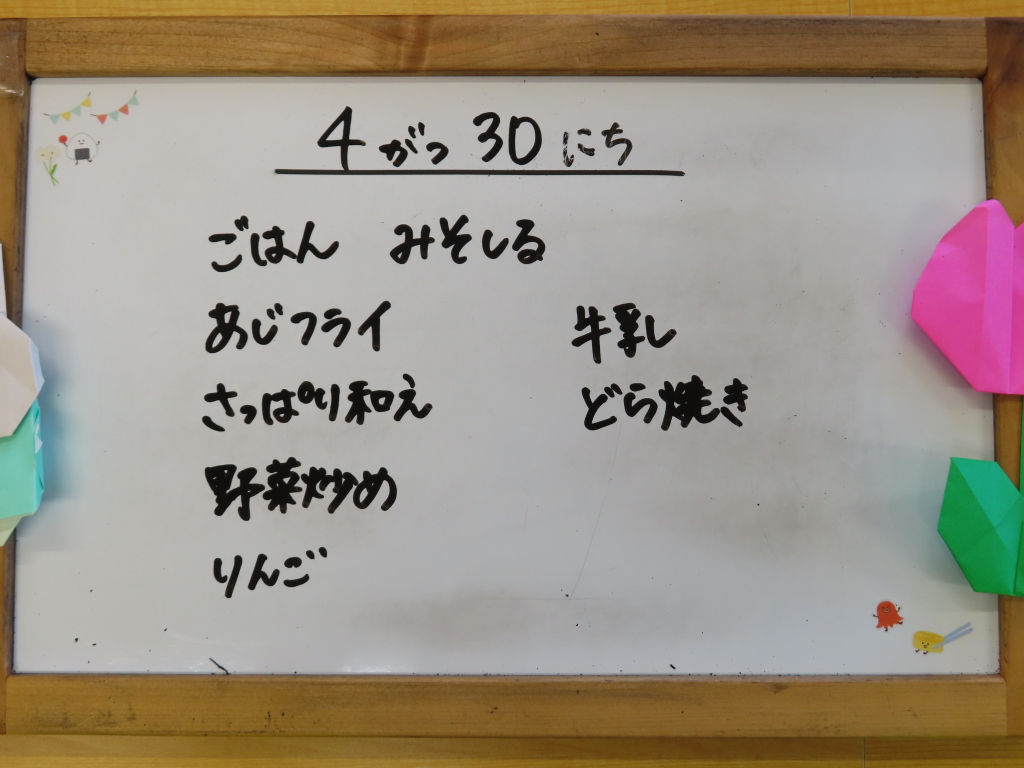 4がつ30にち
ごはん みそしる
あじフライ
さっぱり和え
野菜炒め
りんご
牛乳し
どら焼き